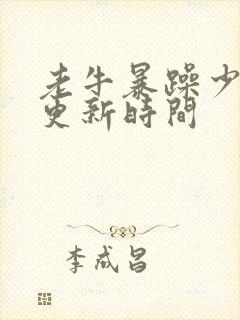 老牛暴躁少
更新時間
李成昌